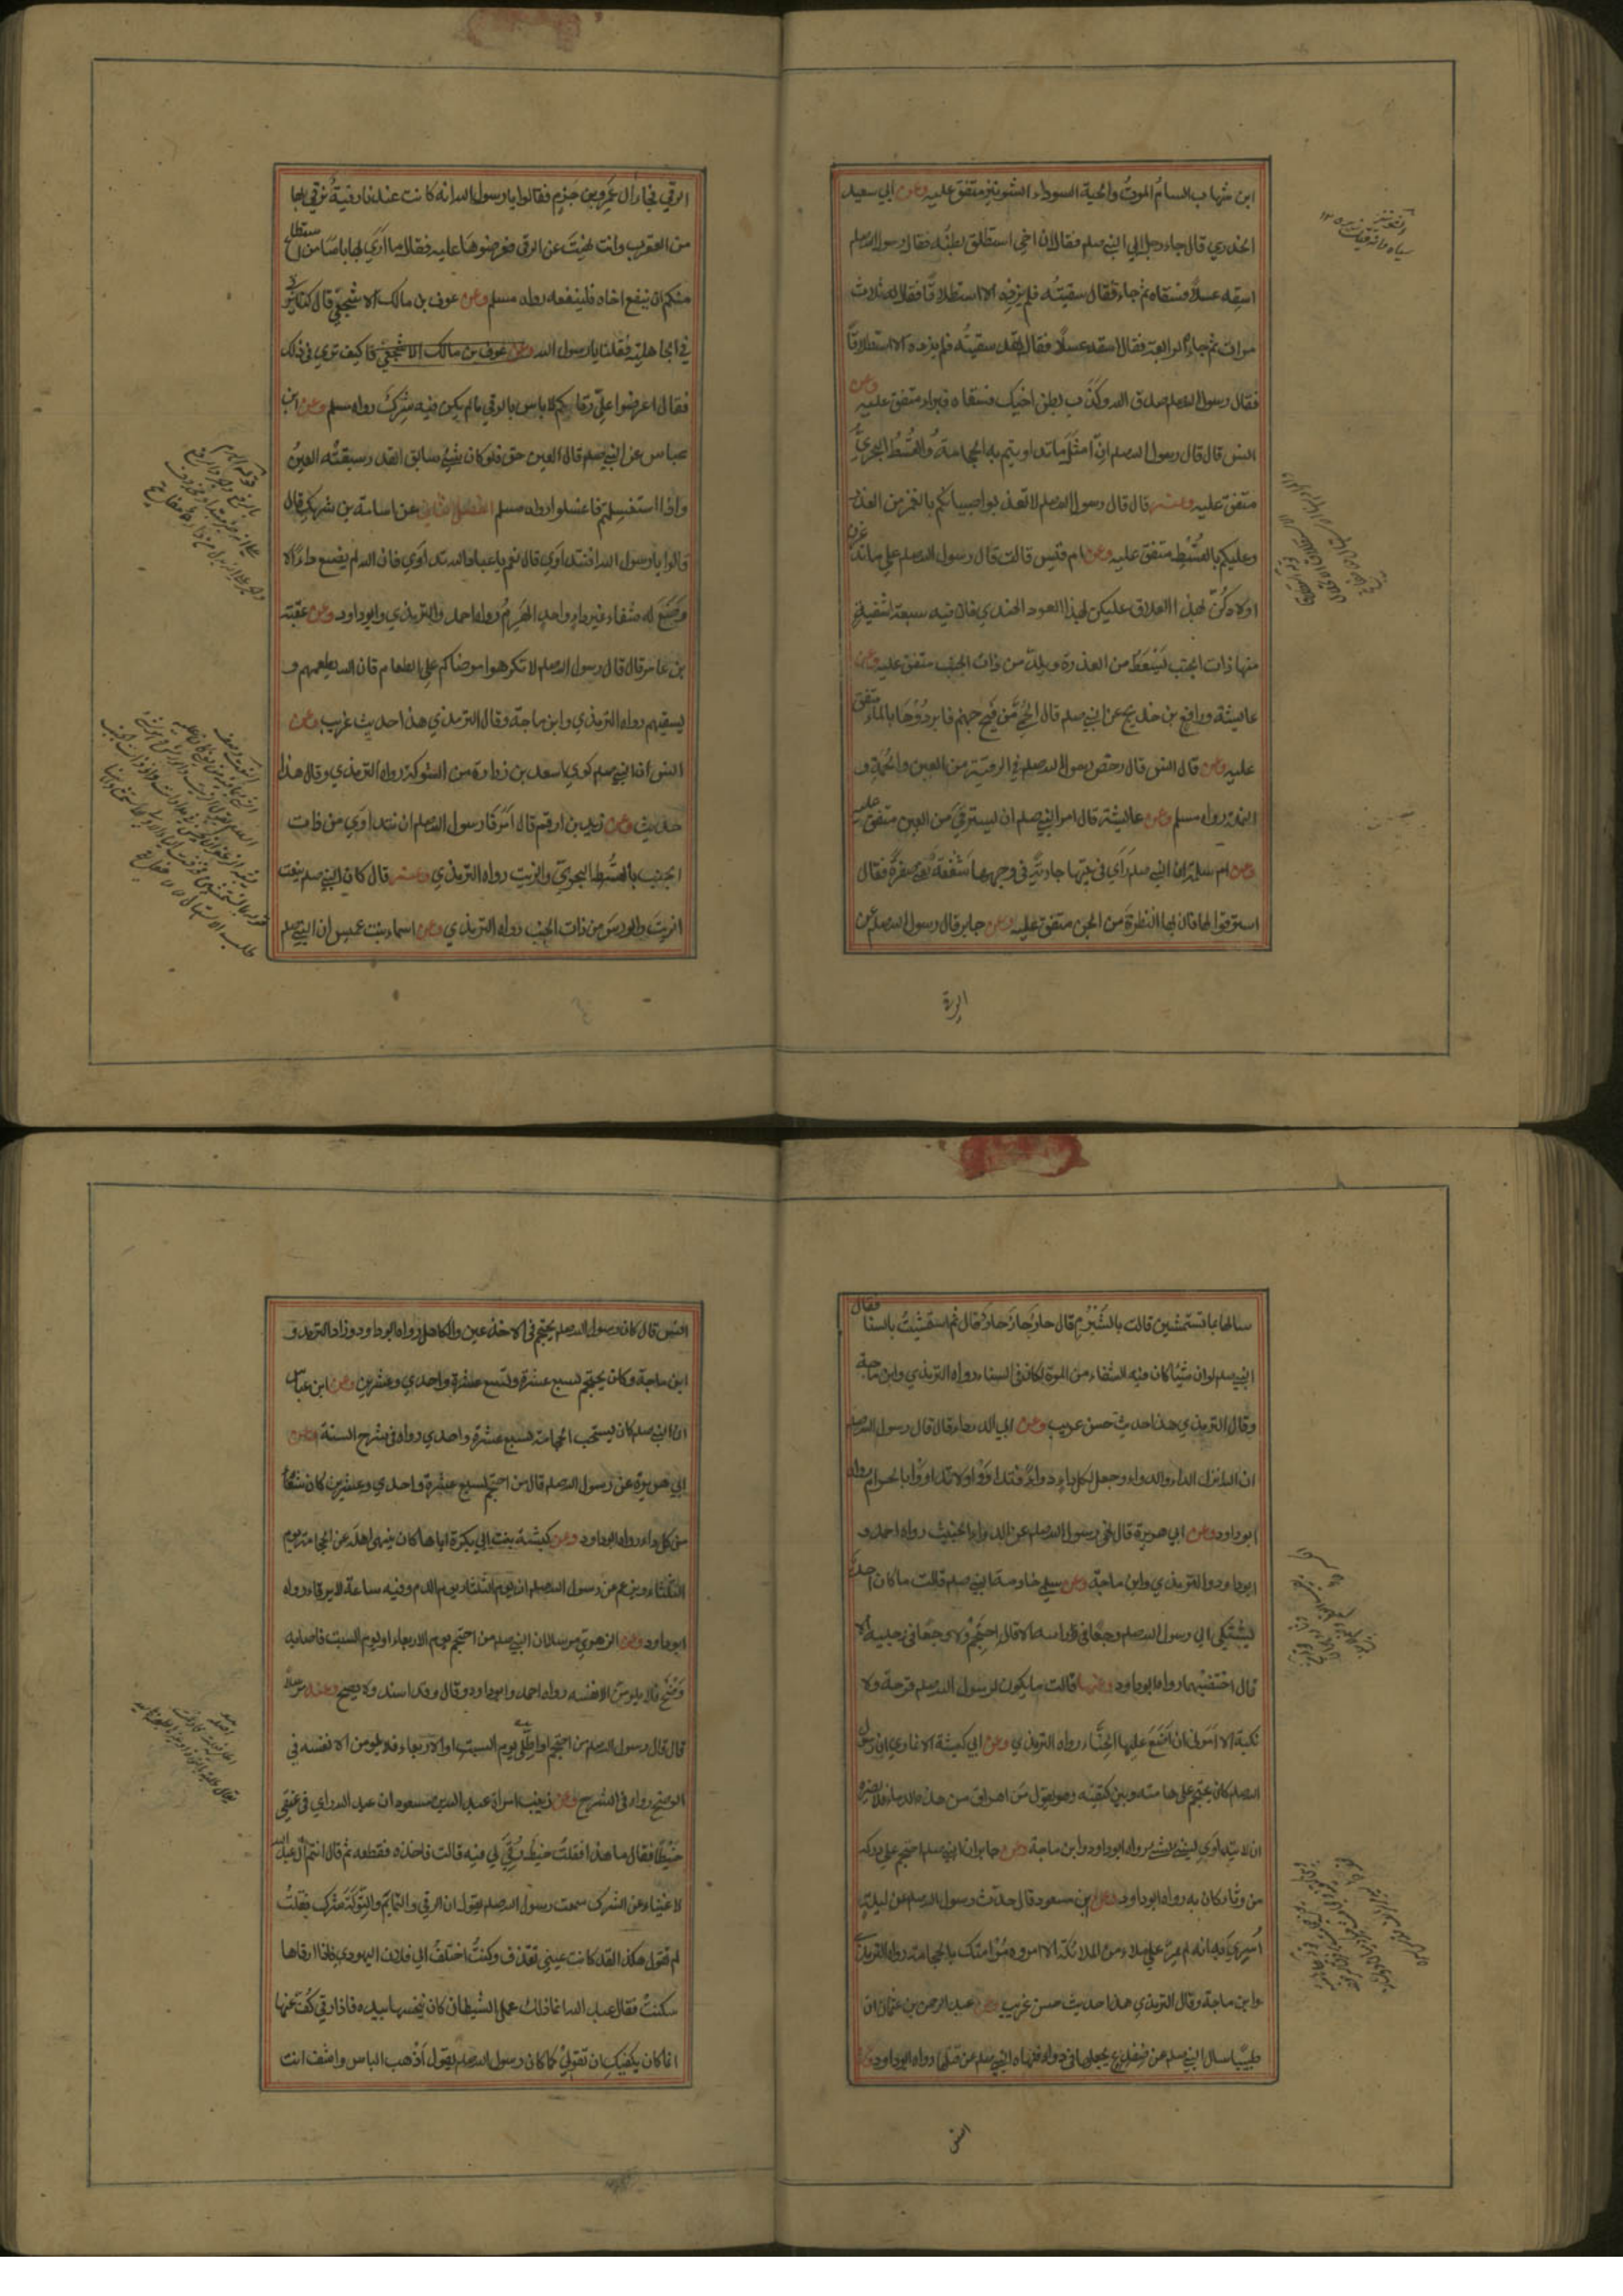 ابن شهاب السام الموت والحبة السوداء الشونيز متفق عليه وعن ابي سعيد
الخدري قال جاء رجل الي النبي صلم فقال ان اخي استطلق بطنه فقال رسول الله صلم
اسقه عسلا فسقاه ثم جاء فقال سقيته فلم يزده الا استطلاقا فقال له ثلاث
مرات ثم جاء الرابعة فقال اسقه عسلا فقال لقد سقيته فلم يزده الا استطلاقا
فقال رسول الله صلم صدق الله وكذب بطن اخيك فسقاه فبرا متفق عليه وعن
انس قال قال رسول الله صلم ان امثل ما تداويتم به الحجامة والقسط البحري
متفق عليه وعنه قال قال رسول الله صلم لا تعذبوا صبيانكم بالغمز من العذرة
وعليكم بالقسط متفق عليه وعن ام قيس قالت قال رسول الله صلم علي ما تدغرن
اولادكن بهذا العلاق عليكن بهذا العود الهندي فان فيه سبعة اشفية
منها ذات الجنب يسعط من العذرة ويلد من ذات الجنب متفق عليه وعن
عايشة ورافع بن خديج عن النبي صلم قال الحمى من فيح جهنم فابردوها بالماء متفق
عليه وعن قال انس قال رخص رسول الله صلم في الرقية من العين والحمة و
النملة رواه مسلم وعن عايشة قال امر النبي صلم ان نسترقي من العين متفق عليه
وعن ام سلمة ان النبي صلم راي في بيتها جارية في وجهها سفعة يعني صفرة فقال
استرقوا لها فان بها النظرة من الجن متفق عليه وعن جابر قال رسول الله صلم عن
الرقي
الرقي فجاء آل عمرو بن حزم فقالوا يا رسول الله انه كانت عندنا رقية نرقي بها
من العقرب وانت نهيت عن الرقى فعرضوها عليه فقال ما اري بها باسا من استطاع
منكم ان ينفع اخاه فلينفعه رواه مسلم وعن عوف بن مالك الاشجعي قال كنا نرقي
في الجاهلية فقلنا يا رسول الله وعن عوف بن مالك الاشجعي قا كيف تري في ذلك
فقال اعرضوا علي رقاكم لا باس بالرقي ما لم يكن فيه شرك رواه مسلم وعن ابن
عباس عن النبي صلم قال العين حق فلو كان شيء سابق القدر سبقته العين
واذا استغسلتم فاغسلوا رواه مسلم الفصل الثاني عن اسامة بن شريك قال
قالوا يا رسول الله افنتداوي قال نعم يا عباد الله تداوي فان الله لم يضع داء الا
وضع له شفاء غير داء واحد الهرم رواه احمد والترمذي وابوداود وعن عقبة
بن عامر قال قال رسول الله صلم لا تكرهوا مرضاكم علي الطعام فان الله يطعمهم و
يسقيهم رواه الترمذي وابن ماجة وقال الترمذي هذا حديث غريب وعن
انس ان النبي صلم كوي اسعد بن زرارة من الشوكة رواه الترمذي وقال هذا
حديث وعن زيد بن ارقم قال امرنا رسول الله صلم ان نتداوي من ذات
الجنب بالقسط البحري والزيت رواه الترمذي وعنه قال كان النبي صلم ينعت
الزيت والورس من ذات الجنب رواه الترمذي وعن اسماء بنت عميس ان النبي صلم
سالها بما تستمشين قالت بالشبرم قال حار جار حار قال ثم استمشيت بالسنا فقال
النبي صلم لو ان شيئا كان فيه الشفاء من الموت لكان في السناء رواه الترمذي وابن ماجة
وقال الترمذي هذا حديث حسن غريب وعن ابي الدرداء قال قال رسول الله صلم
ان الله انزل الداء والدواء وجعل لكل داء دواء فتداووا ولا تداووا بالحرام رواه
ابوداود وعن ابي هريرة قال نهي رسول الله صلم عن الدواء الخبيث رواه احمد و
ابوداود والترمذي وابن ماجة وعن سلمي خادمة النبي صلم قالت ما كان احد
يشتكي الي رسول الله صلم وجعا في راسه الا قال احتجم ولا وجعا في رجليه الا
قال اختضبهما رواه ابوداود وعنها قالت ما يكون لرسول الله صلم قرحة ولا
نكبة الا امرني ان اضع عليها الحناء رواه الترمذي وعن ابي كبشة الانماري ان رسول
الله صلم كان يحتجم على هامته وبين كتفيه وهو يقول من اهراق من هذه الدماء فلا يضره
ان لا يتداوي لشيء بشيء رواه ابوداود وابن ماجة وعن جابر ان النبي صلم احتجم علي وركه
من وثاء كان به رواه ابوداود وعن ابن مسعود قال حدث رسول الله صلم عن ليلة
اسري به انه لم يمر علي ملاء من الملائكة الا امروه مر امتك بالحجامة رواه الترمذي
وابن ماجة وقال الترمذي هذا حديث حسن غريب وعن عبد الرحمن بن عثمان ان
طبيبا سال النبي صلم عن ضفدع يجعلها في دواء فنهاه النبي صلم عن قتلها رواه ابوداود وعن
انس
انس قال كان رسول الله صلم يحتجم في الاخدعين والكاهل رواه ابوداود وزاد الترمذي و
ابن ماجة وكان يحتجم لسبع عشرة وتسع عشرة واحدي وعشرين وعن ابن عباس
ان النبي صلم كان يستحب الحجامة لسبع عشرة واحدي رواه في شرح السنة وعن
ابي هريرة عن رسول الله صلم قال من احتجم لسبع عشرة واحدي وعشرين كان شفاء
من كل داء رواه ابوداود وعن كبشة بنت ابي بكرة اباها كان ينهى اهله عن الحجامة يوم
الثلثاء ويزعم عن رسول الله صلم ان يوم الثلثاء يوم الدم وفيه ساعة لا يرقاء رواه
ابوداود وعن الزهري مرسلا ان النبي صلم من احتجم يوم الاربعاء او يوم السبت فاصابه
وضح فلا يلومن الا نفسه رواه احمد وابوداود وقال وقد اسند ولا يصح وعنه مرسلا
قال قال رسول الله صلم من احتجم او اطلى يوم السبت او الاربعاء فلا يلومن الا نفسه في
الوضح رواه في الشرح وعن زينب امراة عبد الله بن مسعود ان عبد الله راي في عنقي
خيطا فقال ما هذا فقلت خيط رقي لي فيه قالت فاخذه فقطعه ثم قال انتم آل عبد الله
لاغنياء عن الشرك سمعت رسول الله صلم يقول ان الرقي والتمايم والتولة شرك فقلت
لم تقول هكذا لقد كانت عيني تقذف وكنت اختلف الي فلان اليهودي فاذا رقاها
سكنت فقال عبد الله انما ذلك عمل الشيطان كان ينخسها بيده فاذا رقي كف عنها
انما كان يكفيك ان تقولي كما كان رسول الله صلم يقول اذهب الباس واشف انت